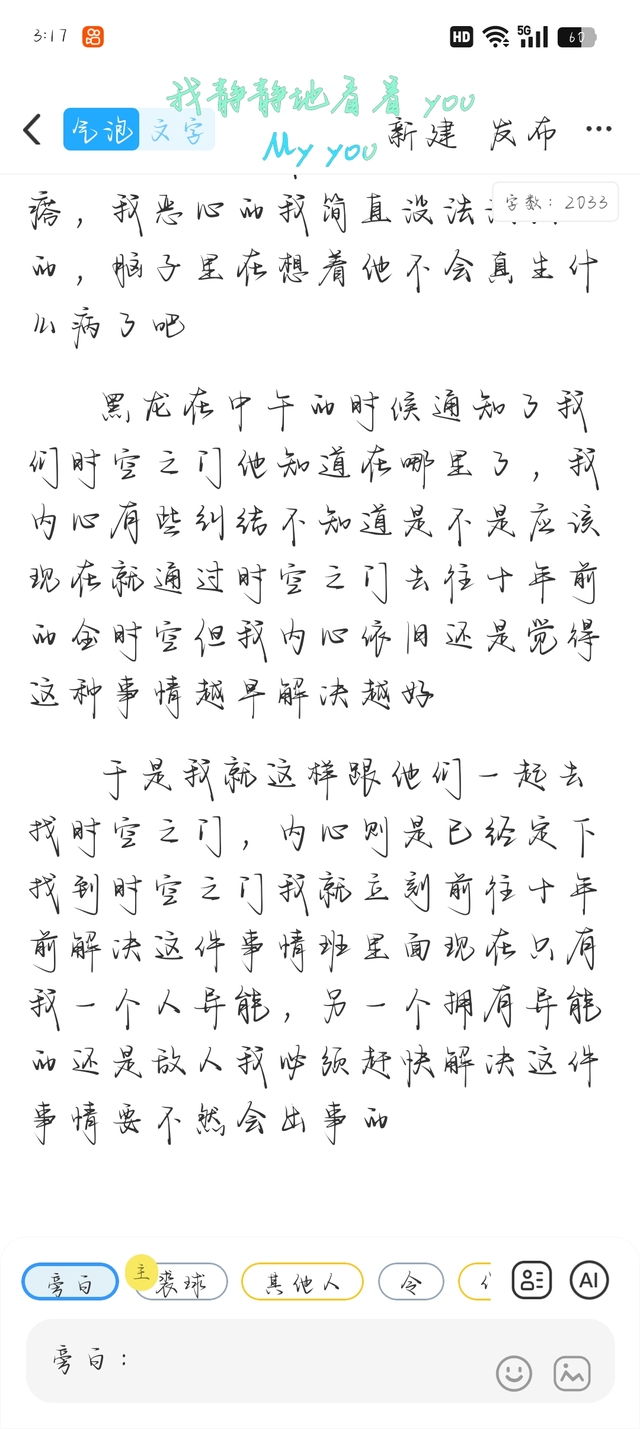 3:17 HD 5G 60
我静静地看着 you
气泡 文字 My you 新建 发布 ...
字数：2033
瘩，我恶心的我简直没法
的，脑子里在想着他不会真生什
么病了吧
黑龙在中午的时候通知了我
们时空之门他知道在哪里了，我
内心有些纠结不知道是不是应该
现在就通过时空之门去往十年前
的全时空但我内心依旧还是觉得
这种事情越早解决越好
于是我就这样跟他们一起去
找时空之门，内心则是已经定下
找到时空之门我就立刻前往十年
前解决这件事情班里面现在只有
我一个人异能，另一个拥有异能
的还是敌人我必须赶快解决这件
事情要不然会出事的
旁白 主 裘球 其他人 令
AI
旁白：